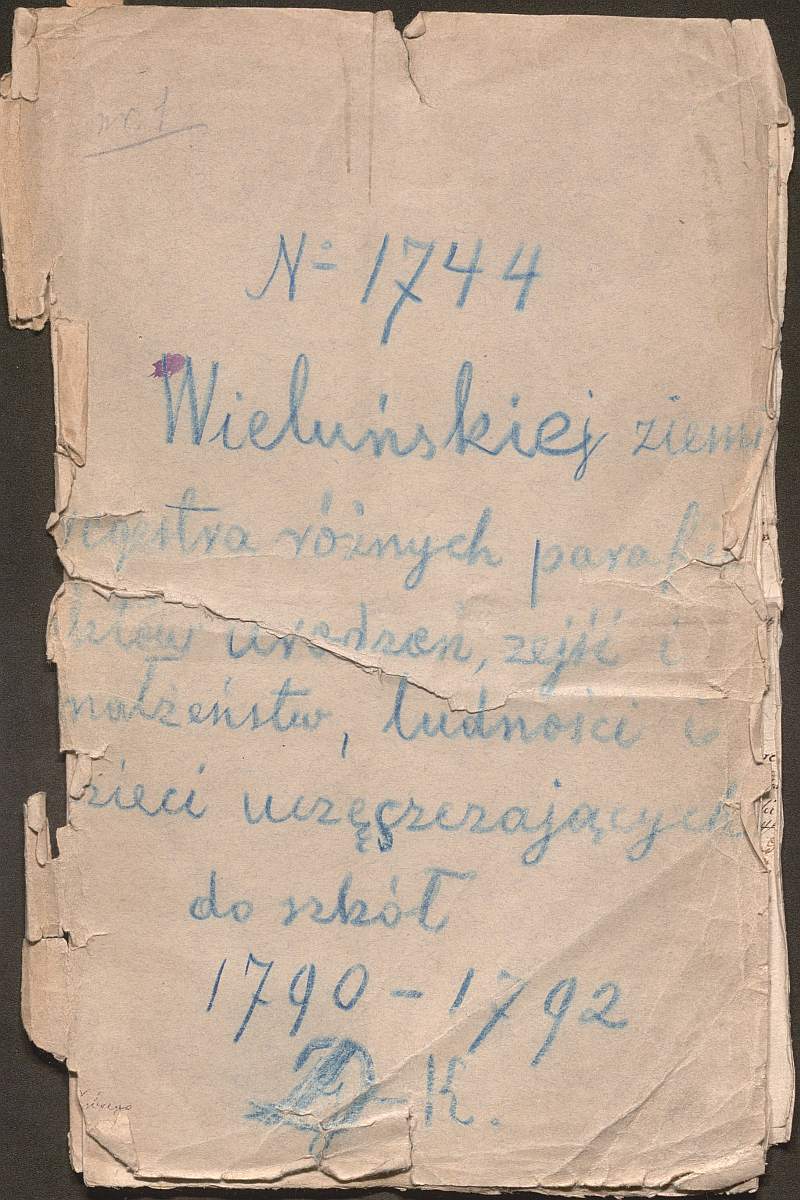 nr. 1
No 1744
Wieluńskiej ziemi
regestra różnych parafii
urodzeń, zejść i
małżeństw, ludności i
dzieci uczęszczających
do szkół
1790 – 1792
K.